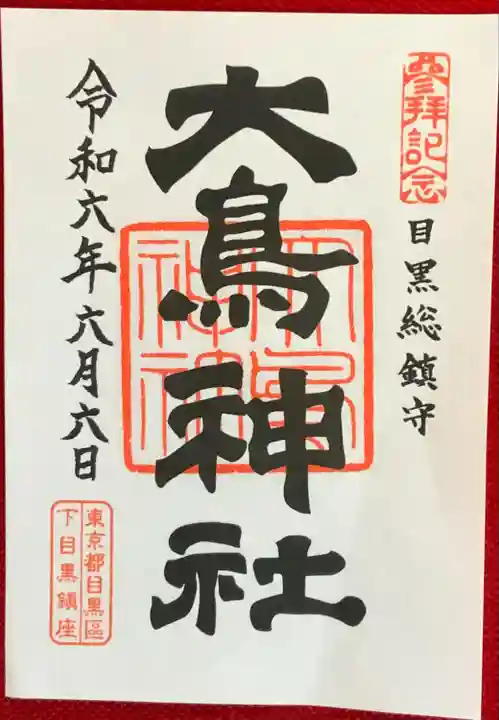 參拜記念
目黒総鎮守
大鳥神社
大鳥神社
令和六年六月六日
東京都目黒區
下目黒鎮座